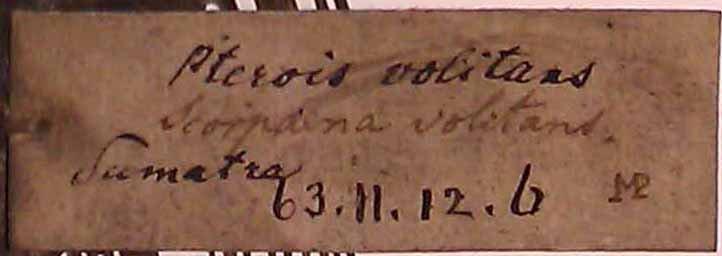 Pterois volitans
Scorpaena volitans.
Sumatra
63.11.12.6